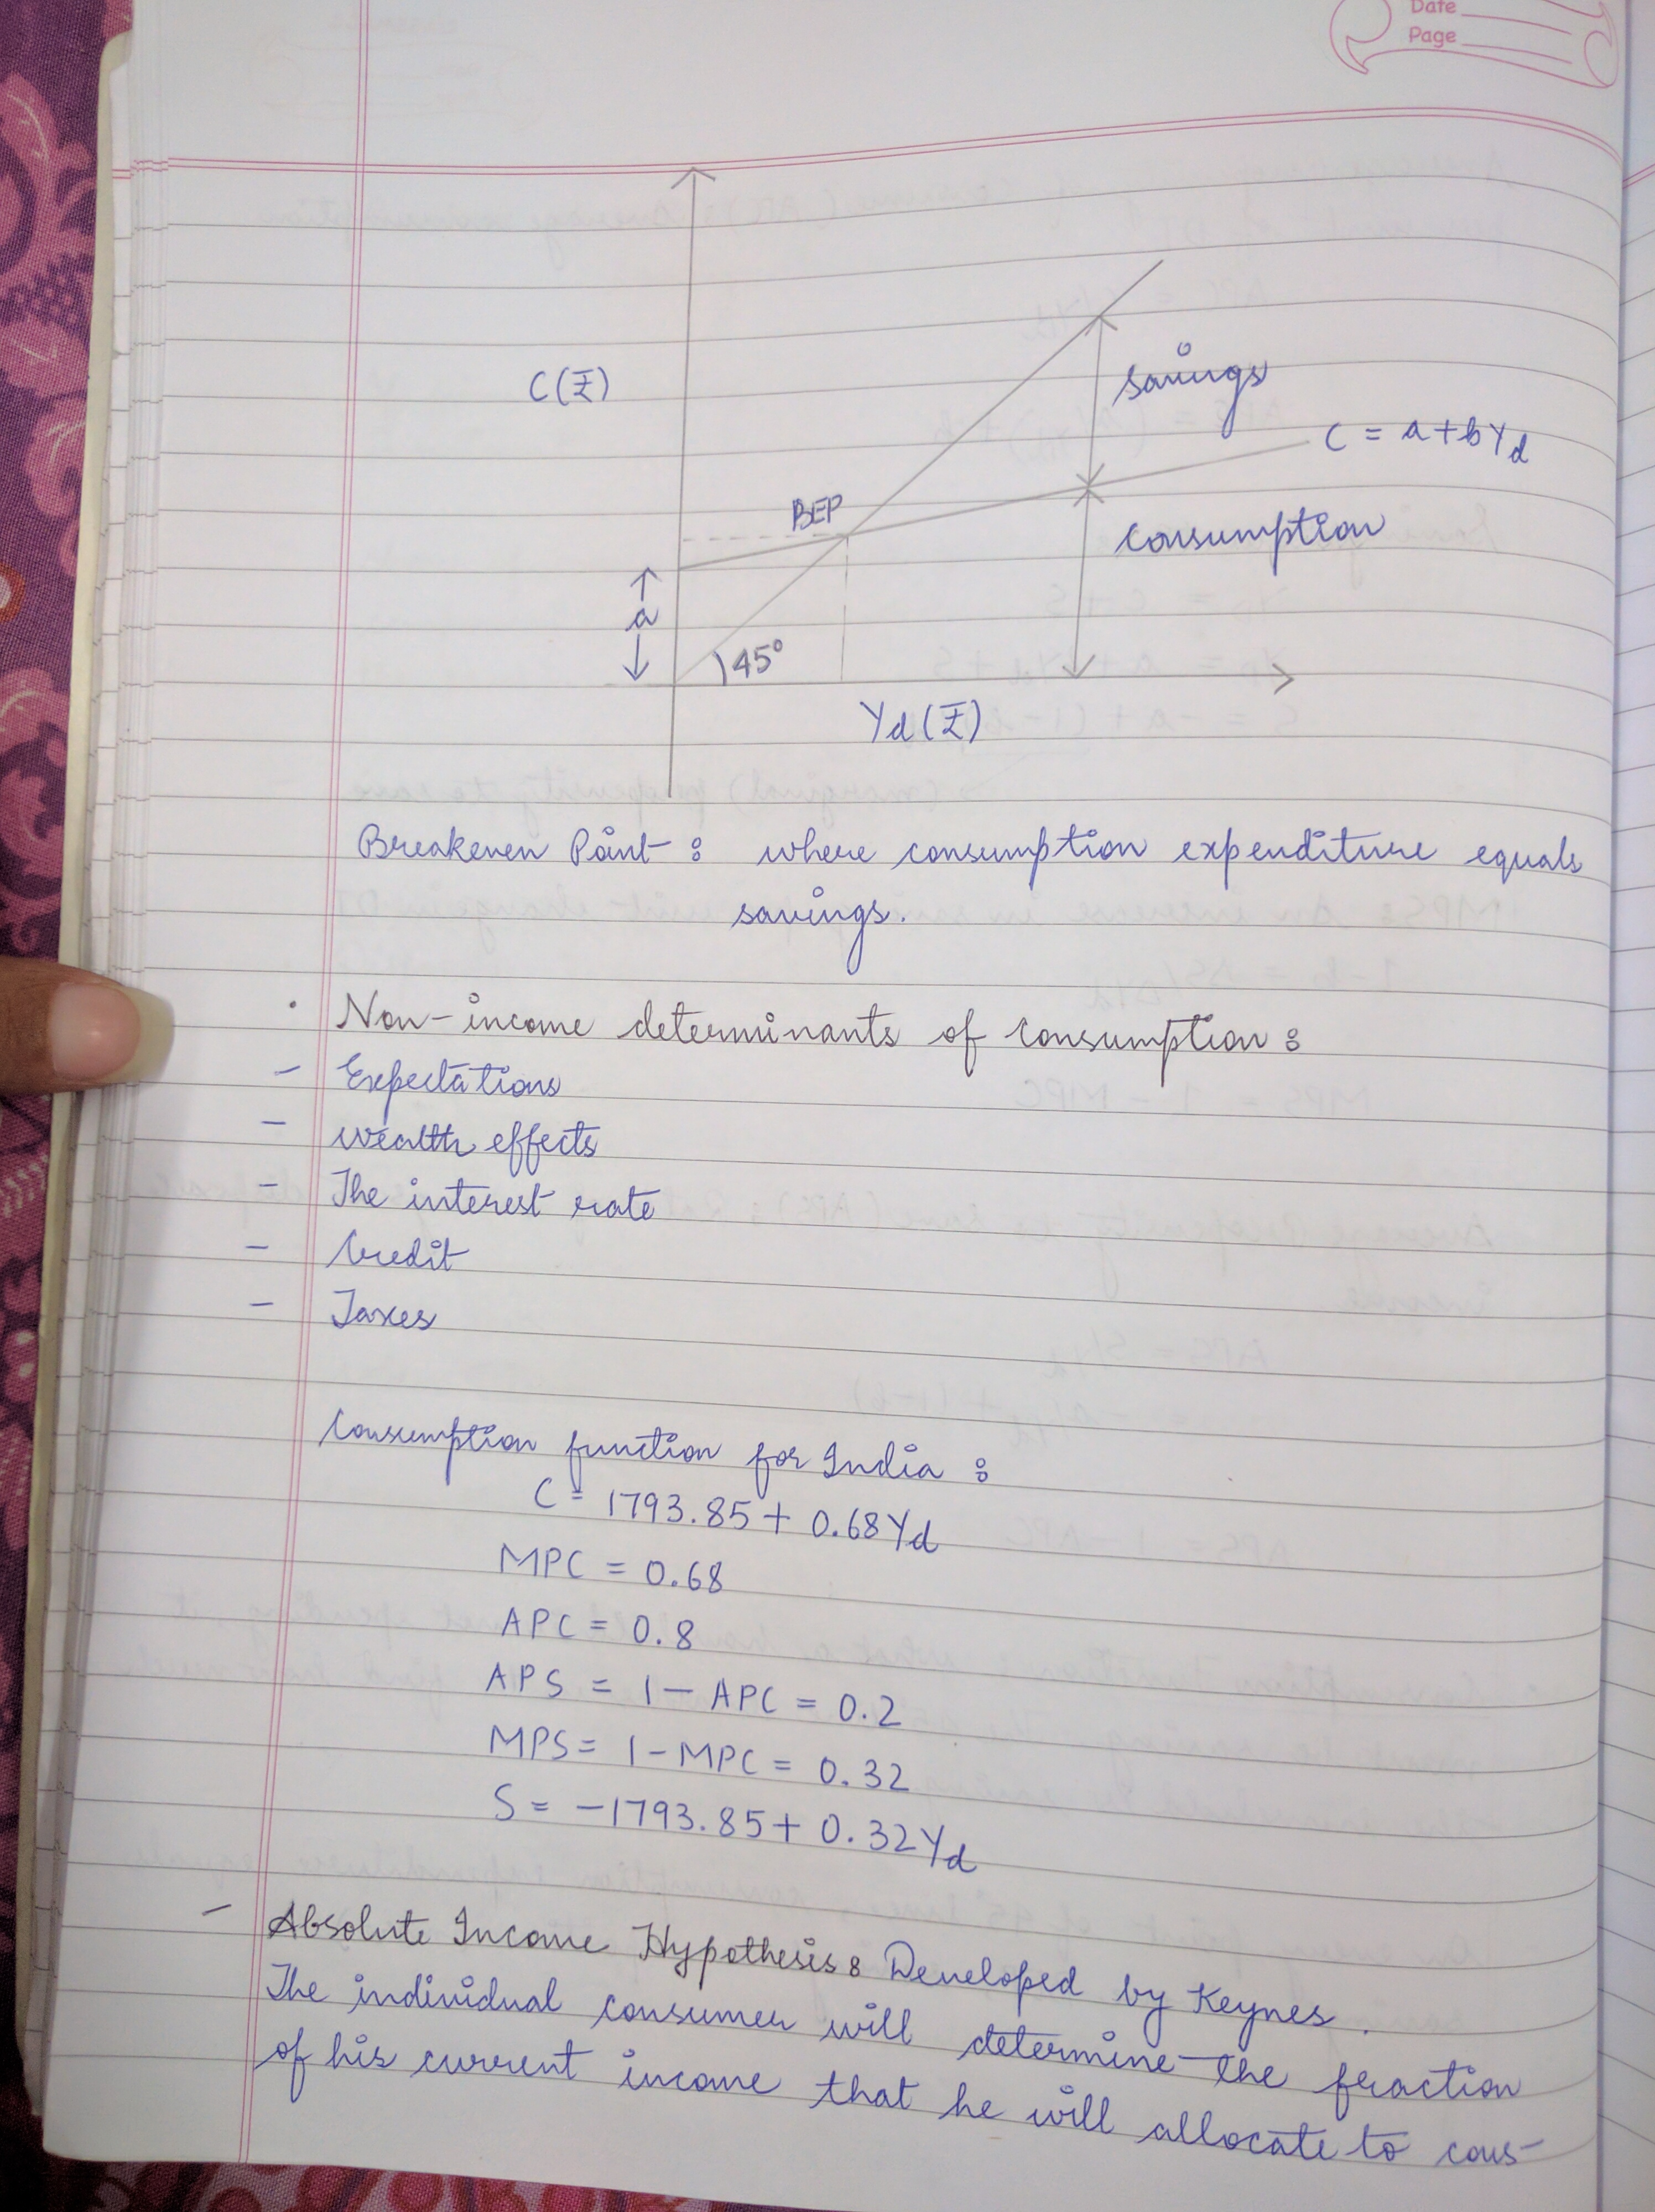 Date
Page
C(₹)
savings
C = a+bYd
BEP
consumption
a
45°
Yd(₹)
Breakeven Point : where consumption expenditure equals
savings.
· Non-income determinants of consumption :
- Expectations
- wealth effects
- The interest rate
- Credit
- Taxes
Consumption function for India :
C = 1793.85 + 0.68Yd
MPC = 0.68
APC = 0.8
APS = 1 - APC = 0.2
MPS = 1 - MPC = 0.32
S = -1793.85 + 0.32Yd
- Absolute Income Hypothesis : Developed by Keynes.
The individual consumer will determine the fraction
of his current income that he will allocate to cons-